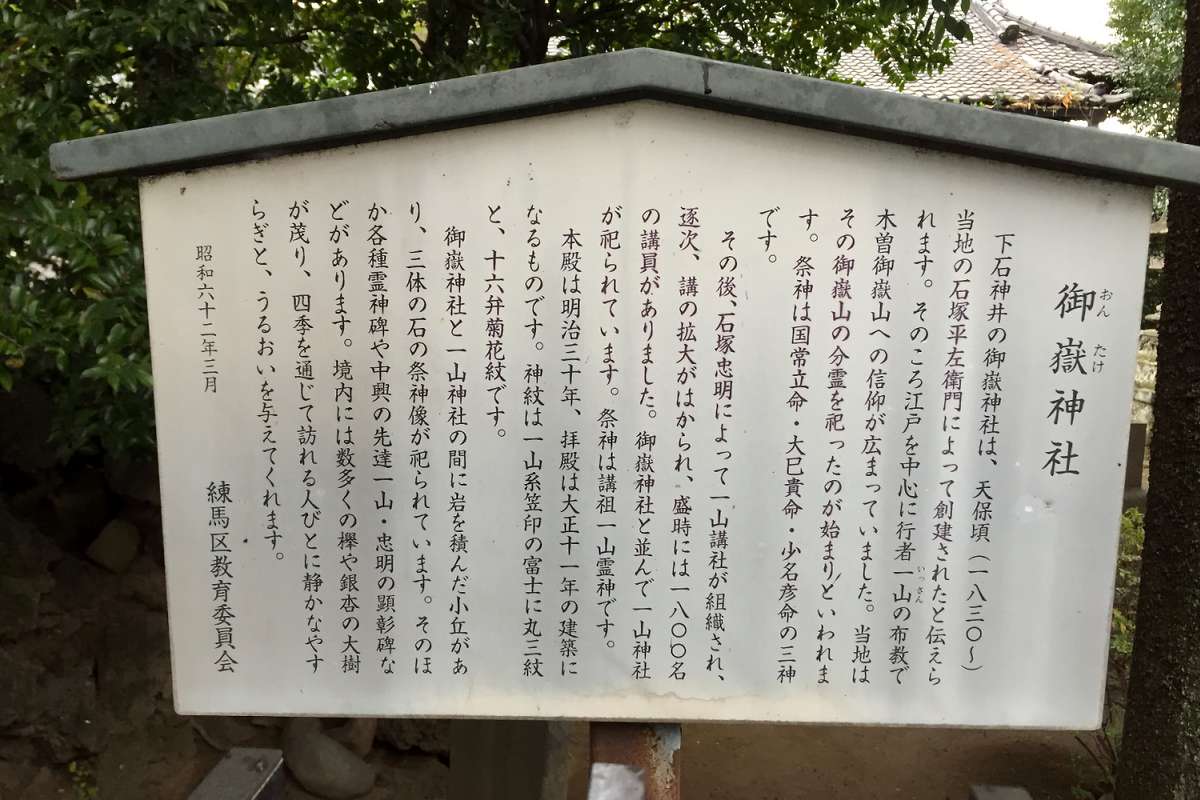 御嶽神社
おんたけ
下石神井の御嶽神社は、天保頃(一八三〇~)
当地の石塚平左衛門によって創建されたと伝えら
れます。そのころ江戸を中心に行者一山の布教で
いっさん
木曽御嶽山への信仰が広まっていました。当地は
その御嶽山の分霊を祀ったのが始まりといわれま
す。祭神は国常立命・大巳貴命・少名彦命の三神
です。
その後、石塚忠明によって一山講社が組織され、
逐次、講の拡大がはかられ、盛時には一八〇〇名
の講員がありました。御嶽神社と並んで一山神社
が祀られています。祭神は講祖一山霊神です。
本殿は明治三十年、拝殿は大正十一年の建築に
なるものです。神紋は一山系笠印の富士に丸三紋
と、十六弁菊花紋です。
御嶽神社と一山神社の間に岩を積んだ小丘があ
り、三体の石の祭神像が祀られています。そのほ
か各種霊神碑や中興の先達一山・忠明の顕彰碑な
どがあります。境内には数多くの欅や銀杏の大樹
が茂り、四季を通じて訪れる人びとに静かなやす
らぎと、うるおいを与えてくれます。
昭和六十二年三月
練馬区教育委員会